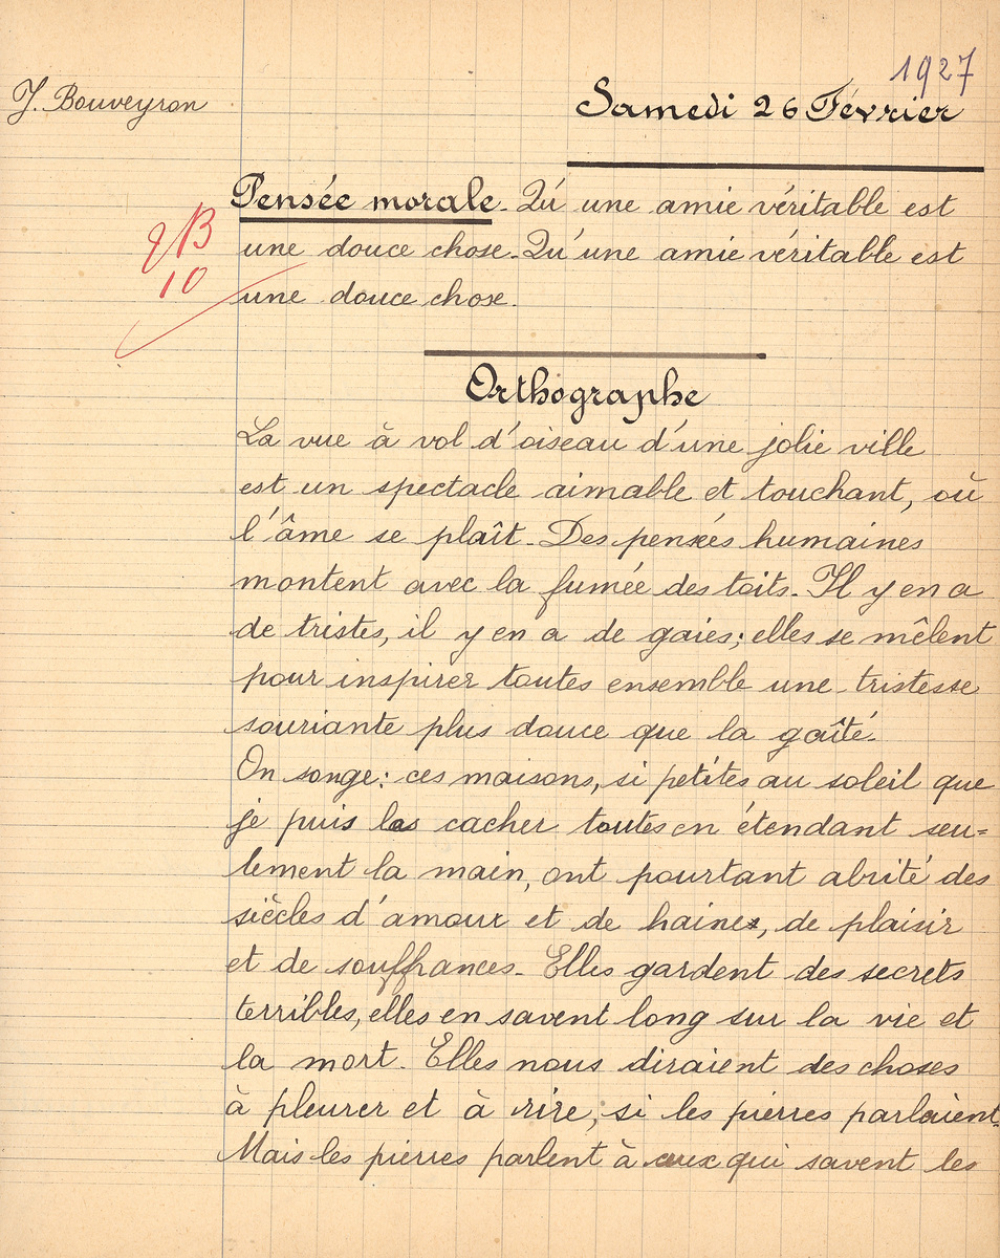 1927
J. Bouveyron
Samedi 26 Février
Pensée morale. Qu'une amie véritable est
une douce chose. Qu'une amie véritable est
une douce chose.
9 B
10
Orthographe
La vue à vol d'oiseau d'une jolie ville
est un spectacle aimable et touchant, où
l'âme se plaît. Des pensées humaines
montent avec la fumée des toits. Il y en a
de tristes, il y en a de gaies; elles se mêlent
pour inspirer toutes ensemble une tristesse
souriante plus douce que la gaîté.
On songe: ces maisons, si petites au soleil que
je puis les cacher toutes en étendant seu=
lement la main, ont pourtant abrité des
siècles d'amour et de haines, de plaisir
et de souffrances. Elles gardent des secrets
terribles, elles en savent long sur la vie et
la mort. Elles nous diraient des choses
à pleurer et à rire, si les pierres parlaient.
Mais les pierres parlent à ceux qui savent les